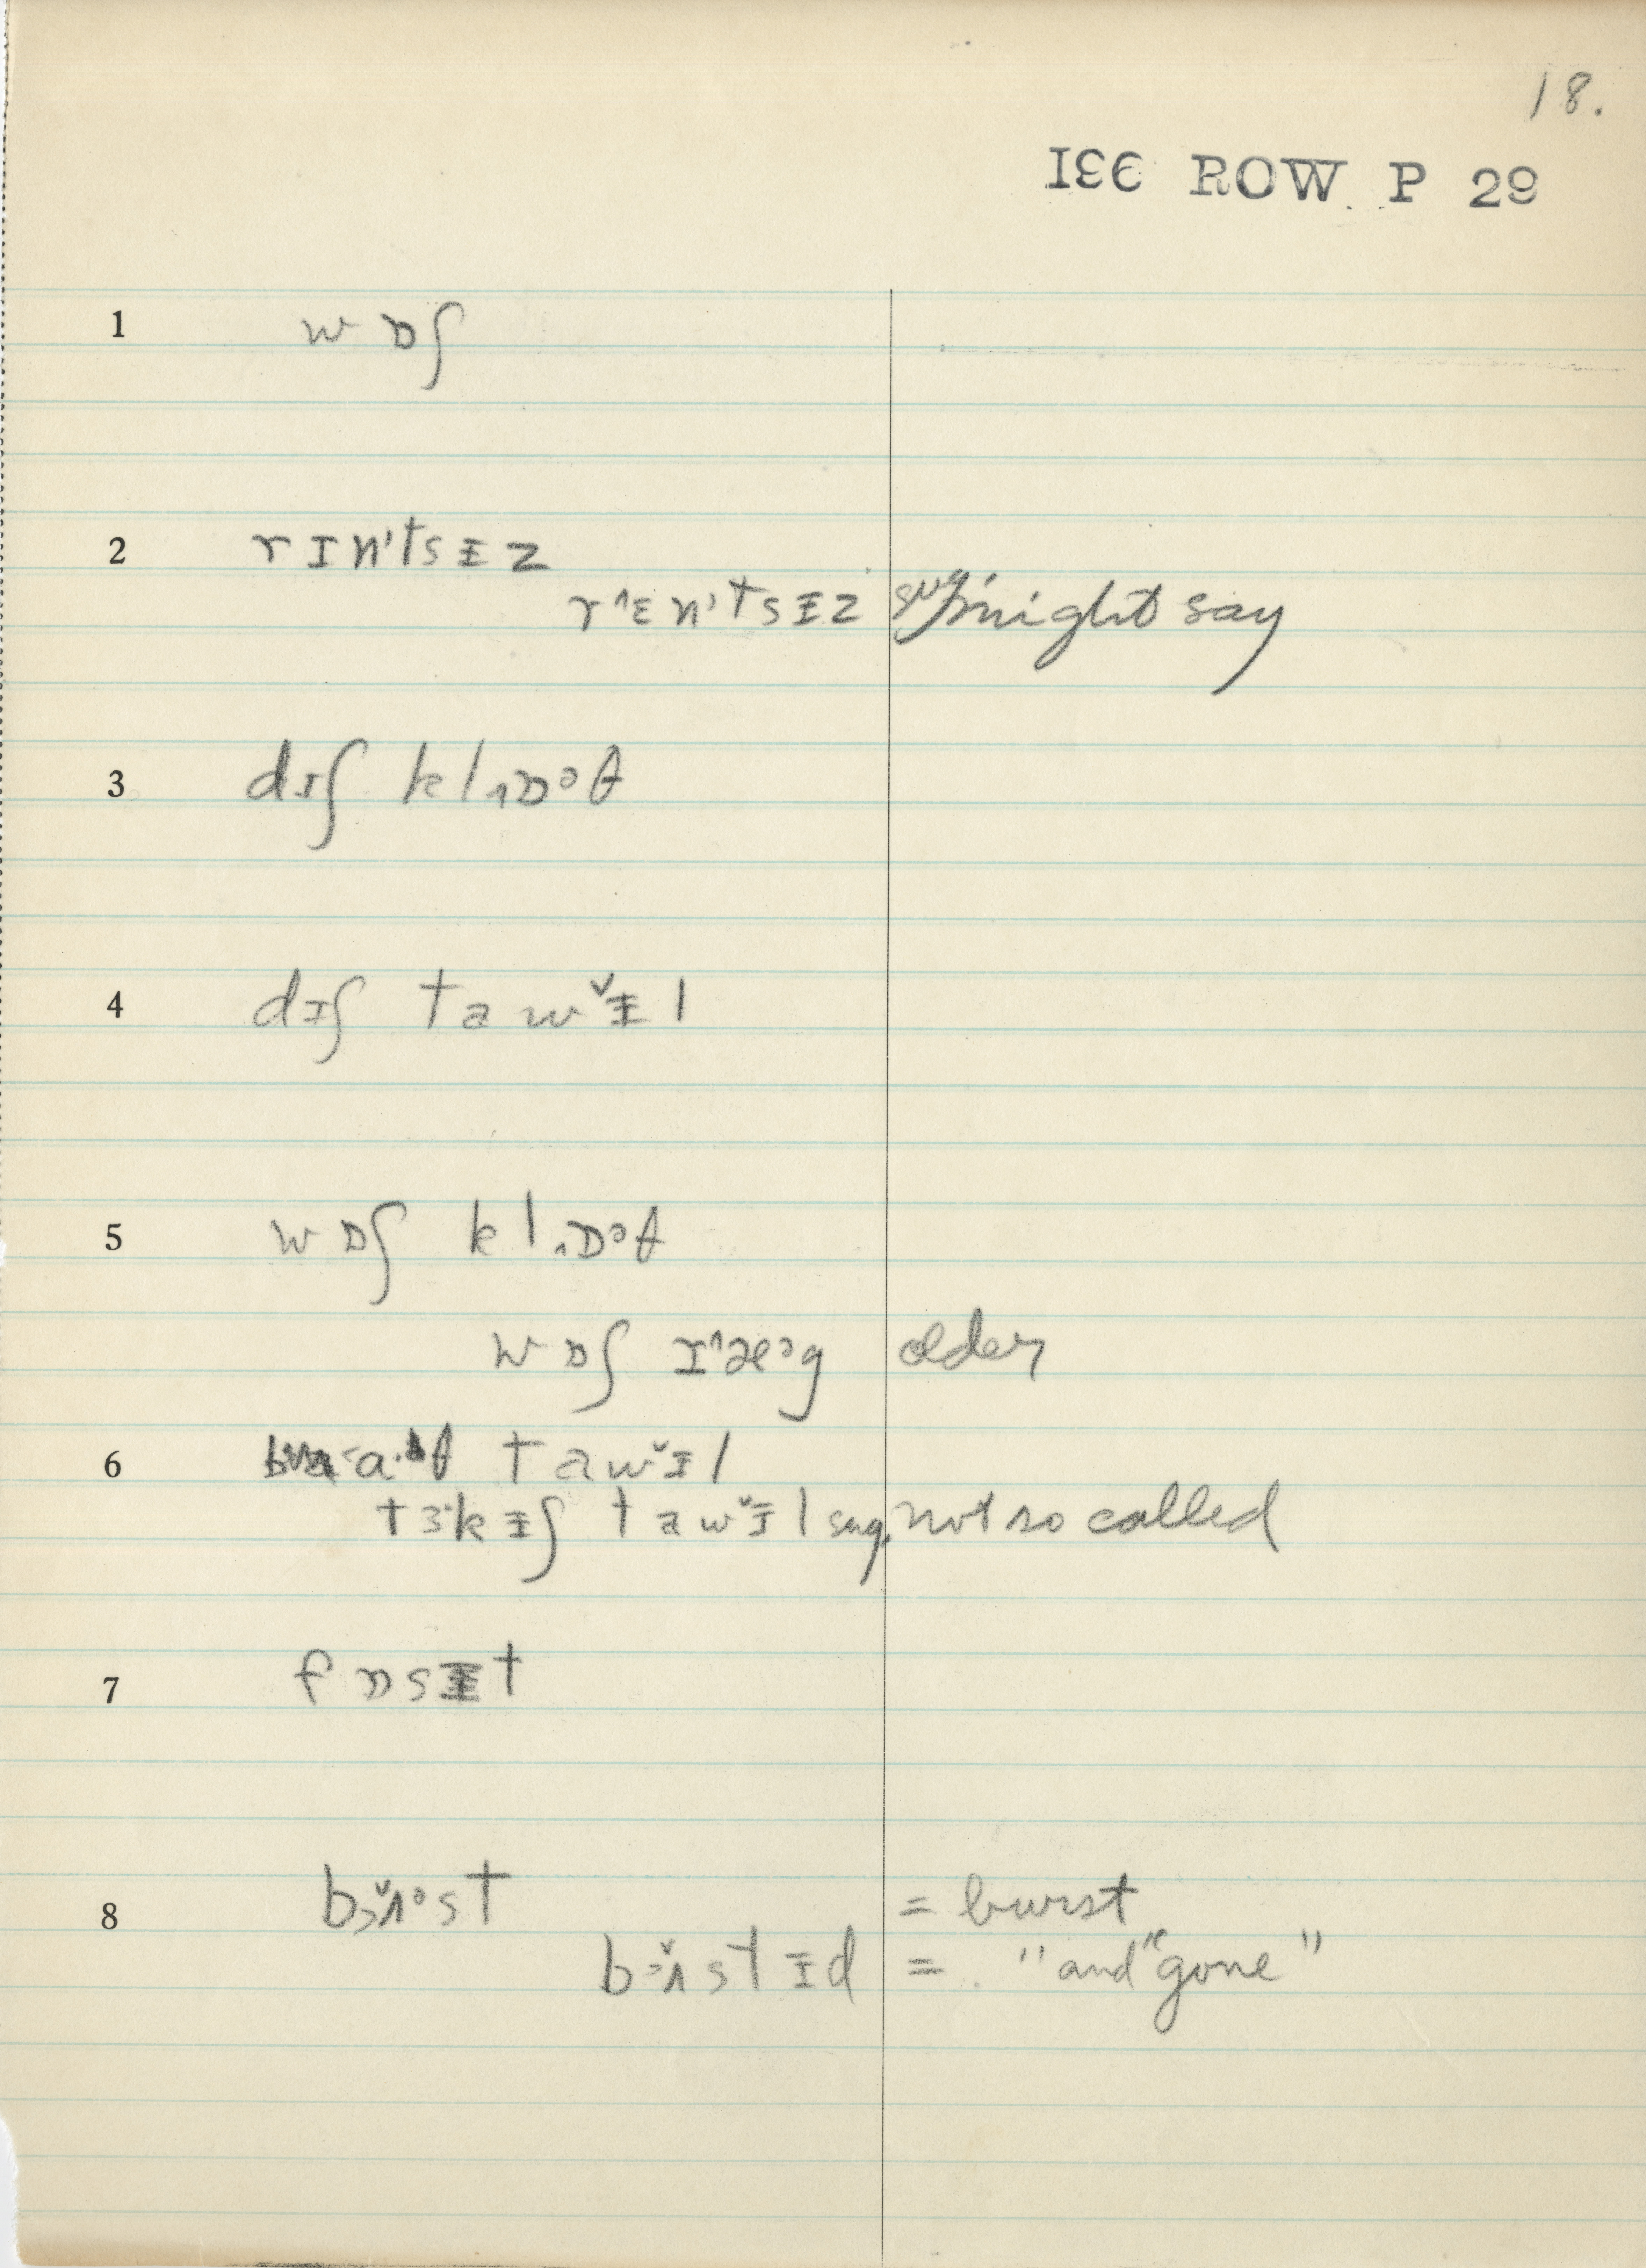 18.
IƐЄ ROW P 29
1 w ɒʃ
2 r ɪ n't s ɪ z
r^ɛ n't s ɪ z sug. might say
3 dɪʃ kl˰ɒᵊθ
4 dɪʃ t a w ˇɪ l
5 w ɒʃ kl˰ɒᵊθ
w ɒʃ r^æᵊg older
6 a·θ t a w ˇɪ l
t ɜ·k ɪʃ t a w ˇɪ l sug. not so called
7 f ɒ s ɪ t
8 bɜˇʌᵊst = burst
bɜˇʌst ɪd = " and "gone"